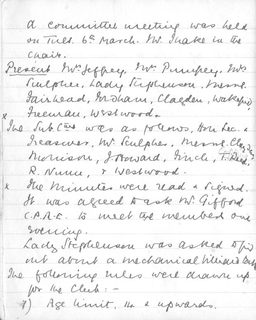 A committee meeting was held
on Tues. 6th March. Mr. Snake in the
chair.
Present Mrs Jeffrey, Mrs Pumprey, Mrs
Sculpher, Lady Stephenson, Messrs
Fairhead, Horsham, Clagden, Wakefield
x Freeman, Westwood.
The Sub Cttee was as follows, Hon Sec. &
Treasurer, Mr Sculpher, Messrs
Morrison, J. Howard, Finch, T. Reid,
R. Nunn, & Westwood.
x The Minutes were read & signed.
It was agreed to ask Mr. Gifford
C.P.R.E. to meet the members one
evening.
Lady Stephenson was asked to find
out about a mechanical
The following rules were drawn up
for the Club :-
1) Age limit, 14 & upwards.